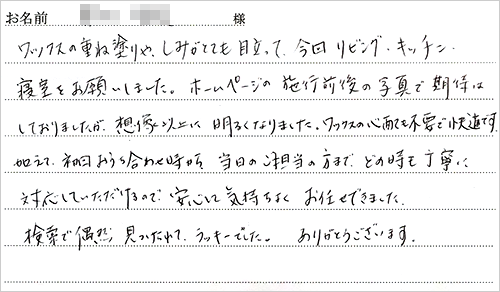 お名前 様
ワックスの重ね塗りや、しみがとても目立って、今回リビング・キッチン・
寝室をお願いしました。ホームページの施行前後の写真で期待は
しておりましたが、想像以上に明るくなりました。ワックスの心配も不要で快適です。
加えて、初回おうち合わせ時から当日のご担当の方まで、どの時も丁寧に
対応していただけるので、安心して気持ちよくお任せできました。
検索で偶然、見つかられて、ラッキーでした。 ありがとうございます。